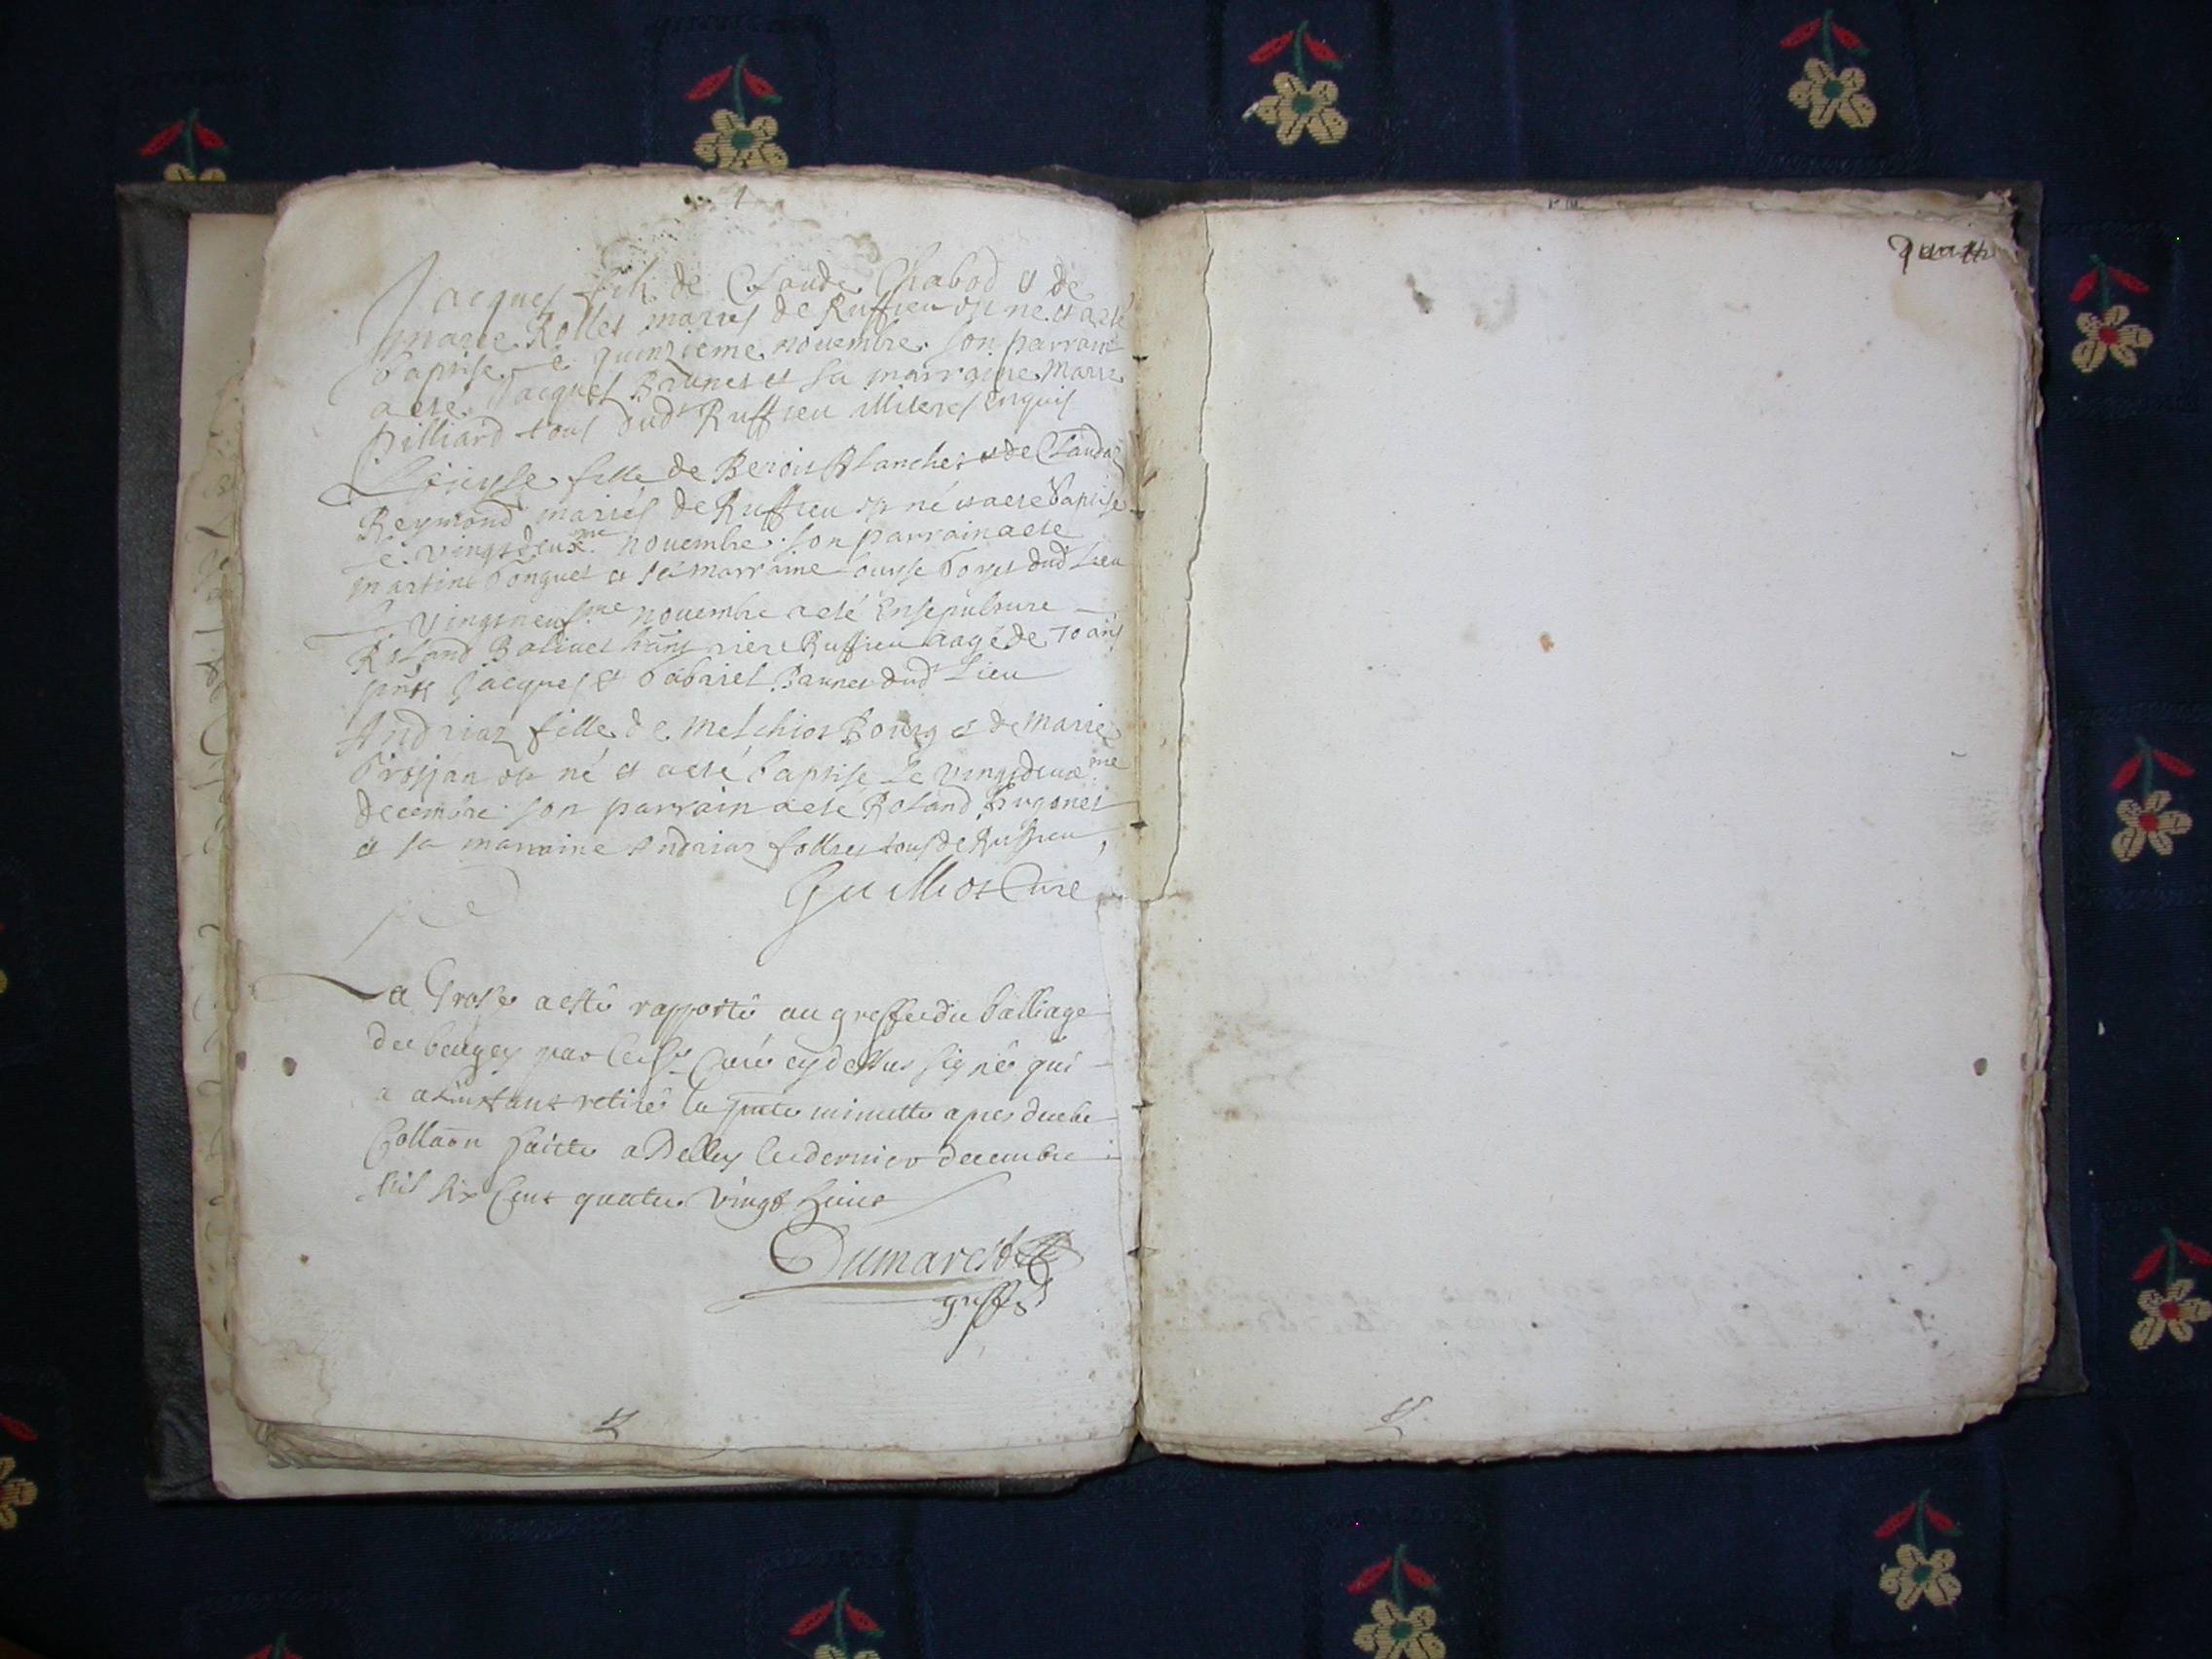 Jacques fils de Claude Chabod et de
marie Rollet mariés de Ruffieu est né et a esté
baptisé le quinzieme novembre. son parrain
a esté Jacques Brunet et sa marraine Marie
Billiard tous dud Ruffieu illiterés enquis
fille de Benoit Blanchet et de Claudaz
Reymond mariés de Ruffieu est né et a esté baptisé
le vingtdeuxme novembre. son parrain a esté
martin Donguet et sa marraine Louyse dud lieu
Le Vingtneufme novembre a esté Ensepulture
Roland Bolivet rière Ruffieu aagé de 70 ans
pnts Jacques et Gabriel Brunet dud Lieu
Andriaz fille de Melchior Bourg et de Marie
est né et a esté baptisé Le vingtdeuxme
decembre. son parrain a esté Roland Hugonet
et sa marraine Andriaz folliet tous de Ruffieu
Guilliot Curé
La Grosse a esté rapporté au greffe du balliage
de beugey par le Sr Curé cy dessus signé qui
a a l'instant retiré la pnte minutte apres deube
Collaõn faicte a Belley le dernier decembre
Mil six Cent quatre vingt huict
Dumarest
greff